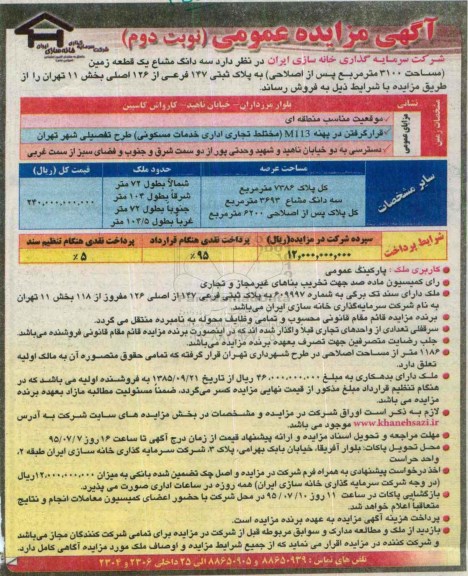 آگهی مزایده عمومی (نوبت دوم)
شرکت سرمایه گذاری خانه سازی ایران
شرکت سرمایه گذاری خانه سازی ایران در نظر دارد سه دانگ مشاع یک قطعه زمین
(مساحت ۳۱۰۰ مترمربع پس از اصلاحی) به پلاک ثبتی ۱۳۷ فرعی از ۱۲۶ اصلی بخش ۱۱ تهران را از
طریق مزایده با شرایط ذیل به فروش رساند.
مشخصات زمین
نشانی
بلوار مرزداران - خیابان ناهید - کارواش کاسپین
مزایای عمومی
موقعیت مناسب منطقه ای
قرارگرفتن در پهنه M113 (مختلط تجاری اداری خدمات مسکونی) طرح تفصیلی شهر تهران
دسترسی به دو خیابان ناهید و شهید وحدتی پور از دو سمت شرق و جنوب و فضای سبز از سمت غربی
سایر مشخصات
مساحت عرصه
حدود ملک
قیمت کل (ریال)
کل پلاک ۷۳۸۶ مترمربع
سه دانگ مشاع ۳۶۹۳ مترمربع
کل پلاک پس از اصلاحی ۶۲۰۰ مترمربع
شمالاً بطول ۷۲ متر
شرقاً بطول ۱۰۳ متر
جنوباً بطول ۷۲ متر
غرباً بطول ۱۰۳/۵ متر
۲۴۰,۰۰۰,۰۰۰,۰۰۰
شرایط پرداخت
سپرده شرکت در مزایده(ریال)
پرداخت نقدی هنگام قرارداد
پرداخت نقدی هنگام تنظیم سند
۱۲,۰۰۰,۰۰۰,۰۰۰
۹۵٪
۵٪
کاربری ملک : پارکینگ عمومی
رای کمیسیون ماده صد جهت تخریب بناهای غیرمجاز و تجاری
ملک دارای سند تک برگی به شماره ۶۰۹۹۹۷ به پلاک ثبتی فرعی ۱۳۷ از اصلی ۱۲۶ مفروز از ۱۱۸ بخش ۱۱ تهران
به نام شرکت سرمایه‌گذاری خانه سازی ایران می‌باشد.
برنده مزایده قائم مقام قانونی محسوب و تمامی وظایف محوله به نامبرده منتقل می گردد.
سرقفلی تعدادی از واحدهای تجاری قبلاً واگذار شده اند که در اینصورت برنده مزایده قائم مقام قانونی فروشنده می‌باشد.
جلب رضایت متصرفین جهت تصرف بعهده برنده مزایده می‌باشد.
۱۱۸۶ متر از مساحت اصلاحی در طرح شهرداری تهران قرار گرفته که تمامی حقوق متصوره آن به مالک اولیه
تعلق دارد.
ملک دارای بدهکاری به مبلغ ۳۶,۰۰۰,۰۰۰,۰۰۰ ریال از تاریخ ۱۳۸۵/۰۹/۲۱ به فروشنده اولیه می باشد که در
هنگام تنظیم قرارداد مبلغ مذکور از قیمت نهایی مزایده کسر می‌گردد، ضمناً مسئولیت مطالبه مازاد بعهده برنده
مزایده می باشد.
لازم به ذکر است اوراق شرکت در مزایده و مشخصات در بخش مزایده های سایت شرکت به آدرس
www.khanehsazi.ir موجود می باشد.
مهلت مراجعه و تحویل اسناد مزایده و ارائه پیشنهاد قیمت از زمان درج آگهی تا ساعت ۱۶ روز ۹۵/۰۷/۷
محل تحویل پاکات: بلوار آفریقا، خیابان بابک بهرامی، پلاک ۳، شرکت سرمایه گذاری خانه سازی ایران طبقه ۲،
واحد حراست
اخذ درخواست پیشنهادی به همراه فرم شرکت در مزایده و اصل چک تضمین شده بانکی به میزان ۱۲,۰۰۰,۰۰۰,۰۰۰ ریال
(در وجه شرکت سرمایه گذاری خانه سازی ایران) همه روزه در ساعات اداری صورت می پذیرد.
بازگشایی پاکات در ساعت ۱۱ روز ۹۵/۰۷/۱۰ در محل شرکت با حضور اعضای کمیسیون معاملات انجام و نتایج
متعاقباً اعلام خواهد شد.
پرداخت هزینه آگهی مزایده به عهده برنده مزایده است.
بازدید از ملک و مطالعه مدارک و سوابق مربوطه قبل از شرکت در مزایده برای تمامی شرکت کنندگان مجاز می‌باشد
و شرکت کننده در مزایده اقرار می نماید که از جمیع شرایط مزایده و اوصاف ملک مورد مزایده آگاهی کامل دارد.
تلفن های تماس : ۸۸۶۵۰۹۳۹ - ۸۸۶۵۰۹۰۵ الی ۲۵ داخلی ۲۳۰۶ و ۲۳۰۴